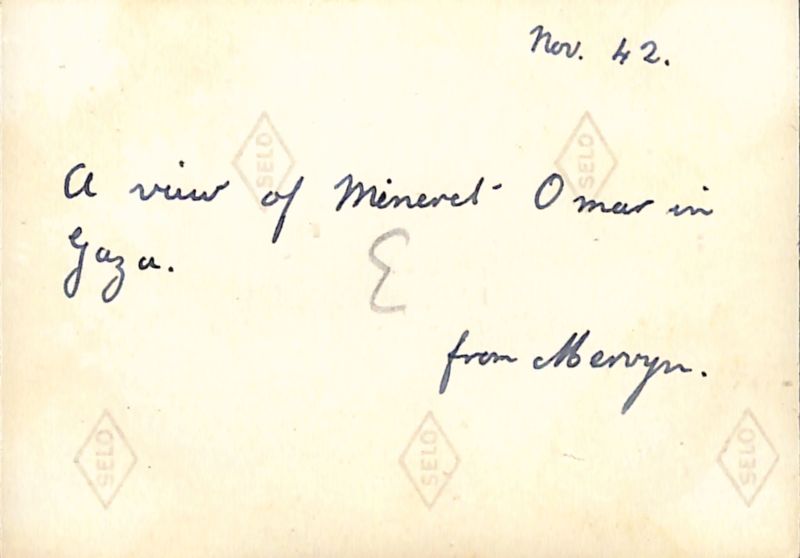 Nov. 42.
SELO SELO
A view of Mineret Omar in
Gaza.
E
from Mervyn.
SELO SELO SELO